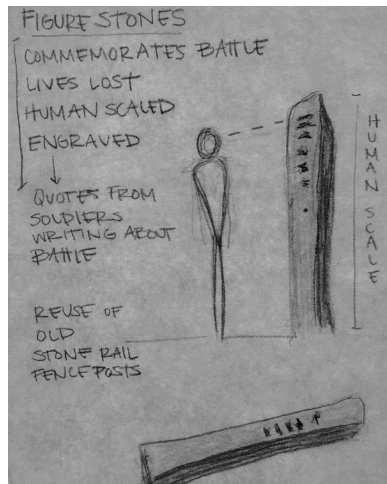 FIGURE STONES
COMMEMORATES BATTLE
LIVES LOST
HUMAN SCALED
ENGRAVED
QUOTES FROM
SOLDIERS
WRITING ABOUT
BATTLE
REUSE OF
OLD
STONE RAIL
FENCE POSTS
HUMAN SCALE